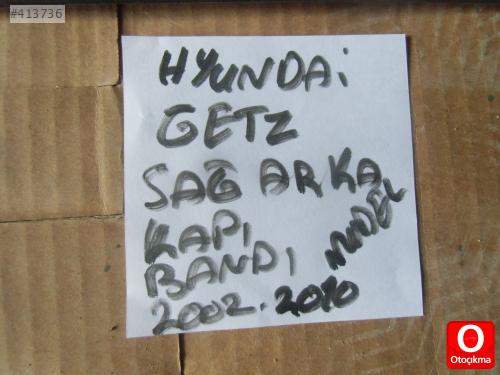 #413736
HYUNDAi
GETZ
SAĞ ARKA
KAPI
BANDI
2002.2010
MODEL
O
Otoçıkma